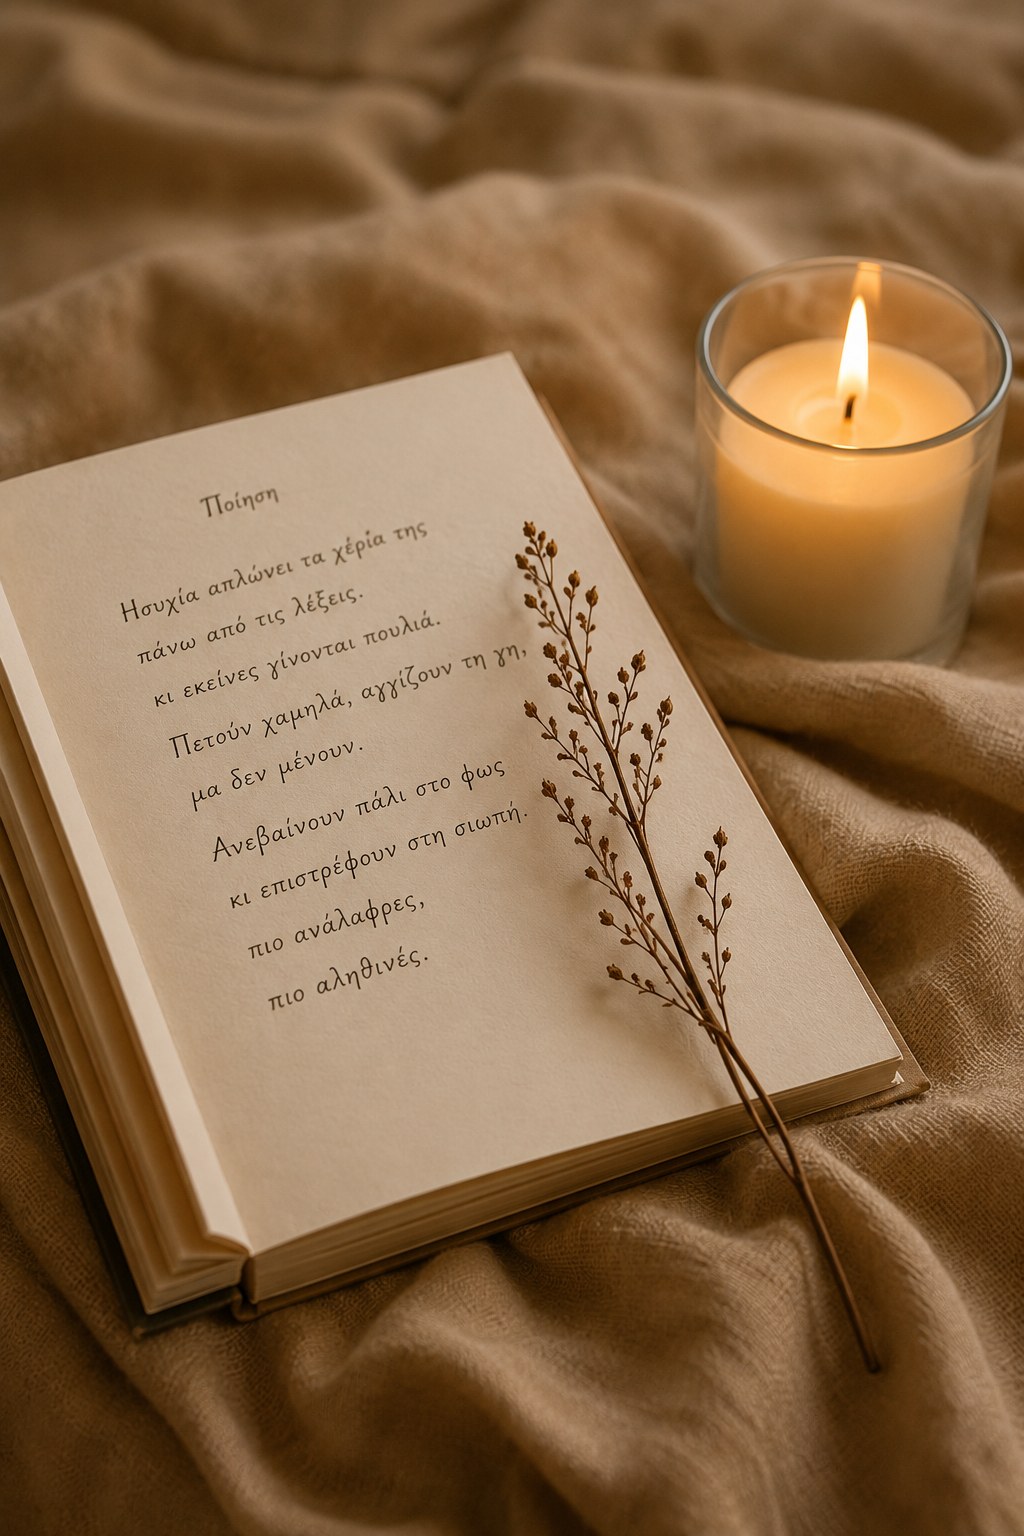 Ποίηση
Ησυχία απλώνει τα χέρία της
πάνω από τις λέξεις.
κι εκείνες γίνονται πουλιά.
Πετούν χαμηλά, αγγίζουν τη γη,
μα δεν μένουν.
Ανεβαίνουν πάλι στο φως
κι επιστρέφουν στη σιωπή.
πιο ανάλαφρες,
πιο αληθινές.